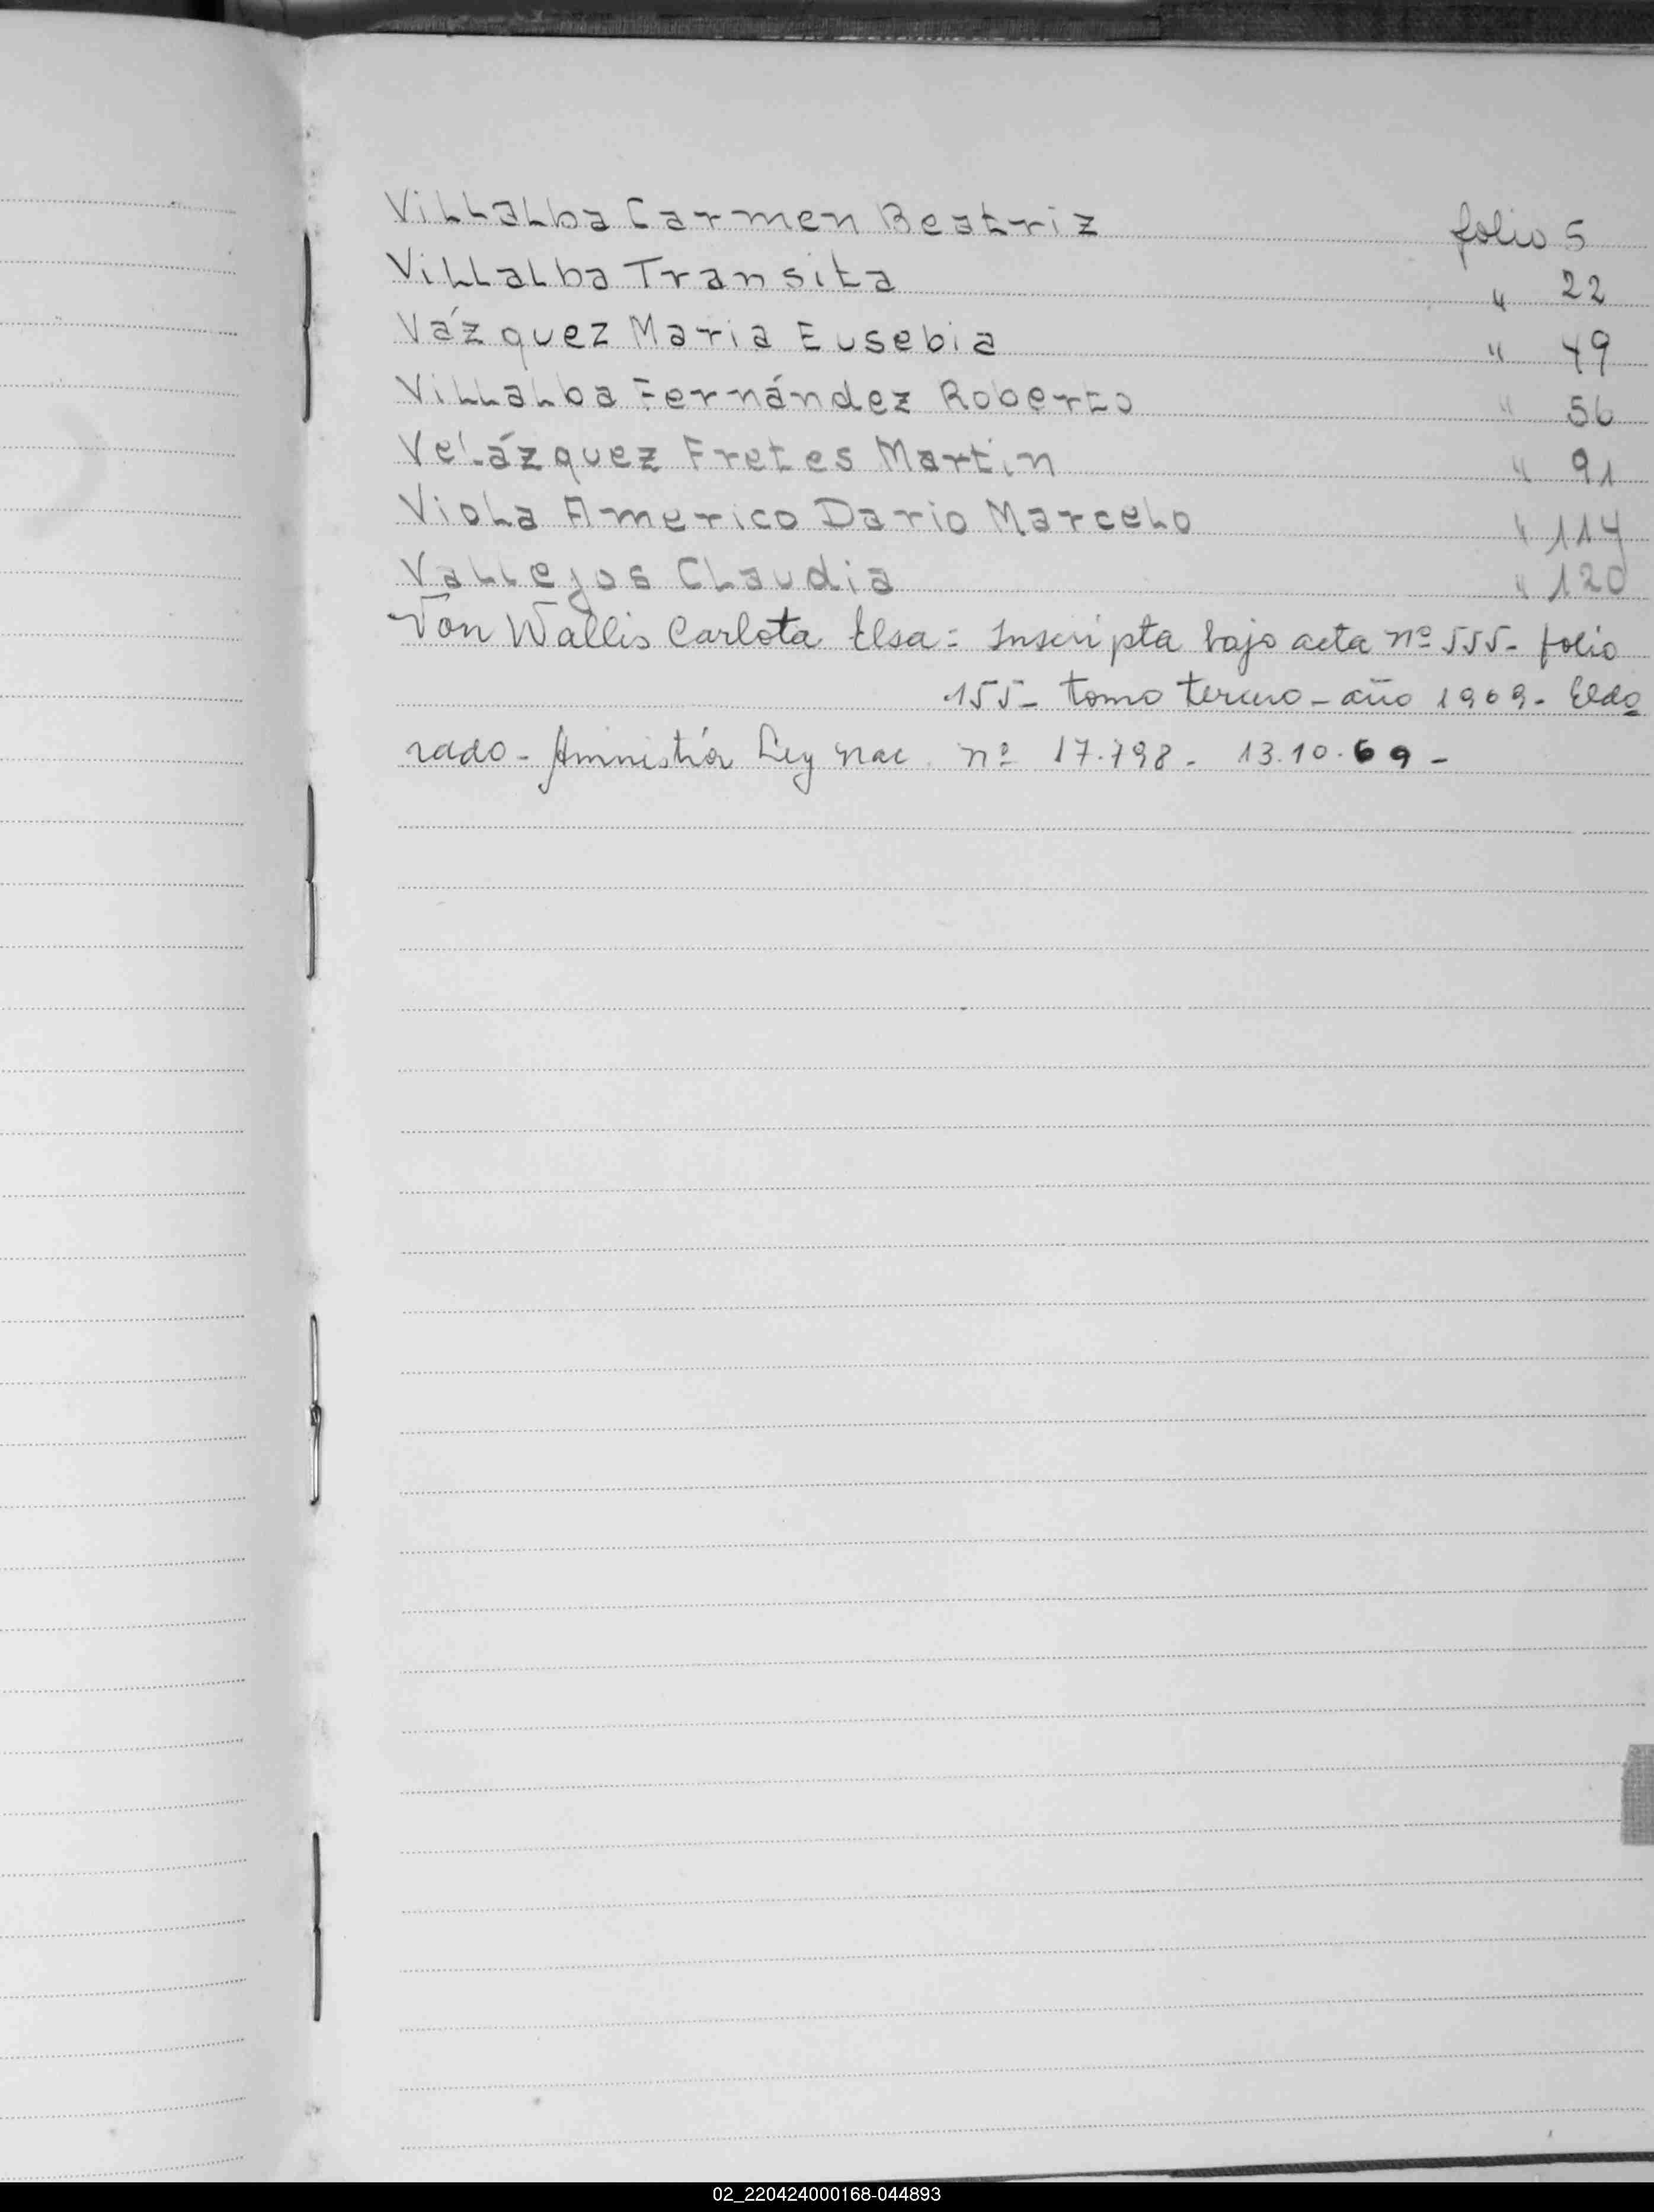 Villalba Carmen Beatriz folio 5
Villalba Transita " 22
Vázquez Maria Eusebia " 49
Villalba Fernández Roberto " 56
Velázquez Fretes Martin " 91
Viola Americo Dario Marcelo " 114
Vallejos Claudia " 120
Von Wallis Carlota Elsa = Inscripta bajo acta nº 555- folio
155- tomo tercero - año 1969- Eldo
rado- Amnistía Ley nac. nº 17.798- 13.10.69-
02_220424000168-044893